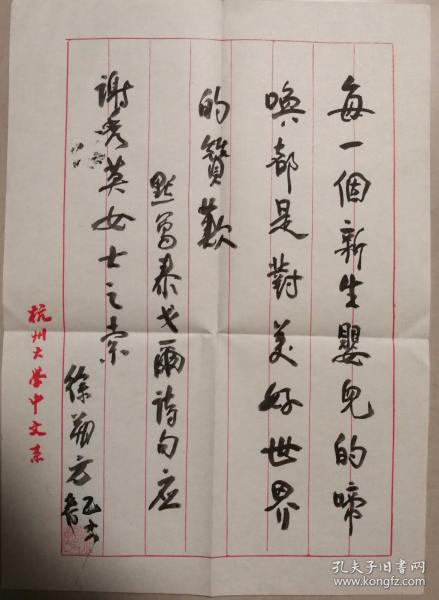 每一個新生嬰兒的啼
喚都是對美好世界
的贊歎
默写泰戈爾詩句应
謝秀英女士之索
徐朔方
乙亥春
杭州大学中文系
孔夫子旧书网
www.kongfz.com